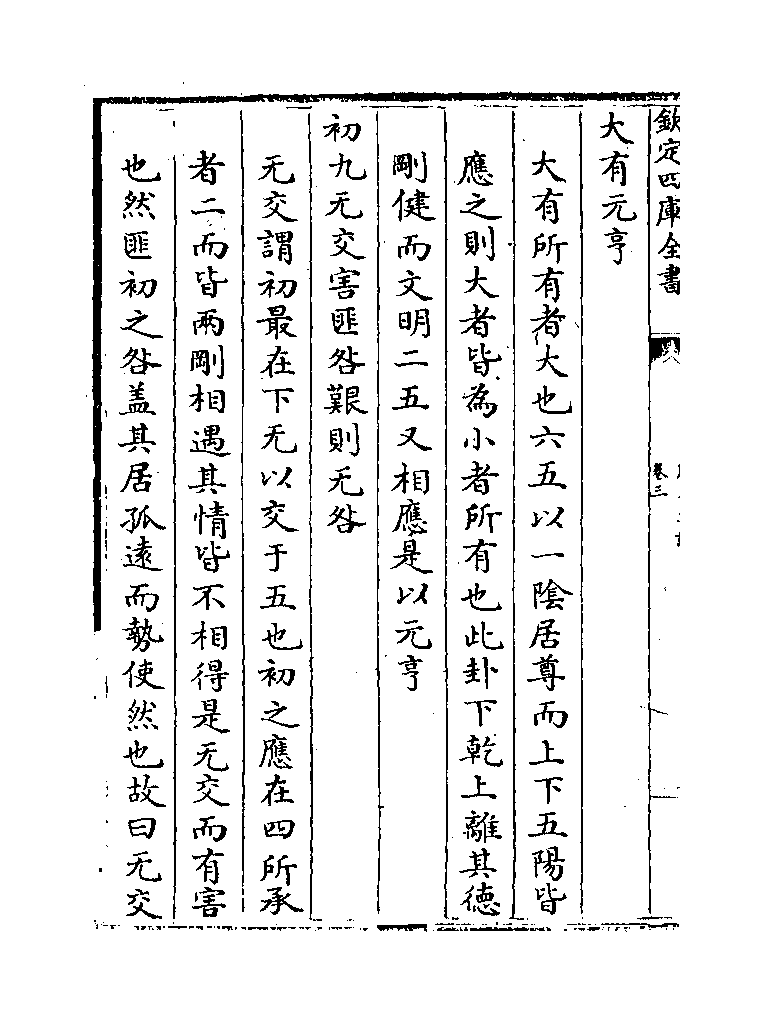 欽定四庫全書
卷三
大有元亨
大有所有者大也六五以一陰居尊而上下五陽皆
應之則大者皆為小者所有也此卦下乾上離其德
剛健而文明二五又相應是以元亨
初九无交害匪咎艱則无咎
无交謂初最在下无以交于五也初之應在四所承
者二而皆兩剛相遇其情皆不相得是无交而有害
也然匪初之咎盖其居孤遠而勢使然也故曰无交